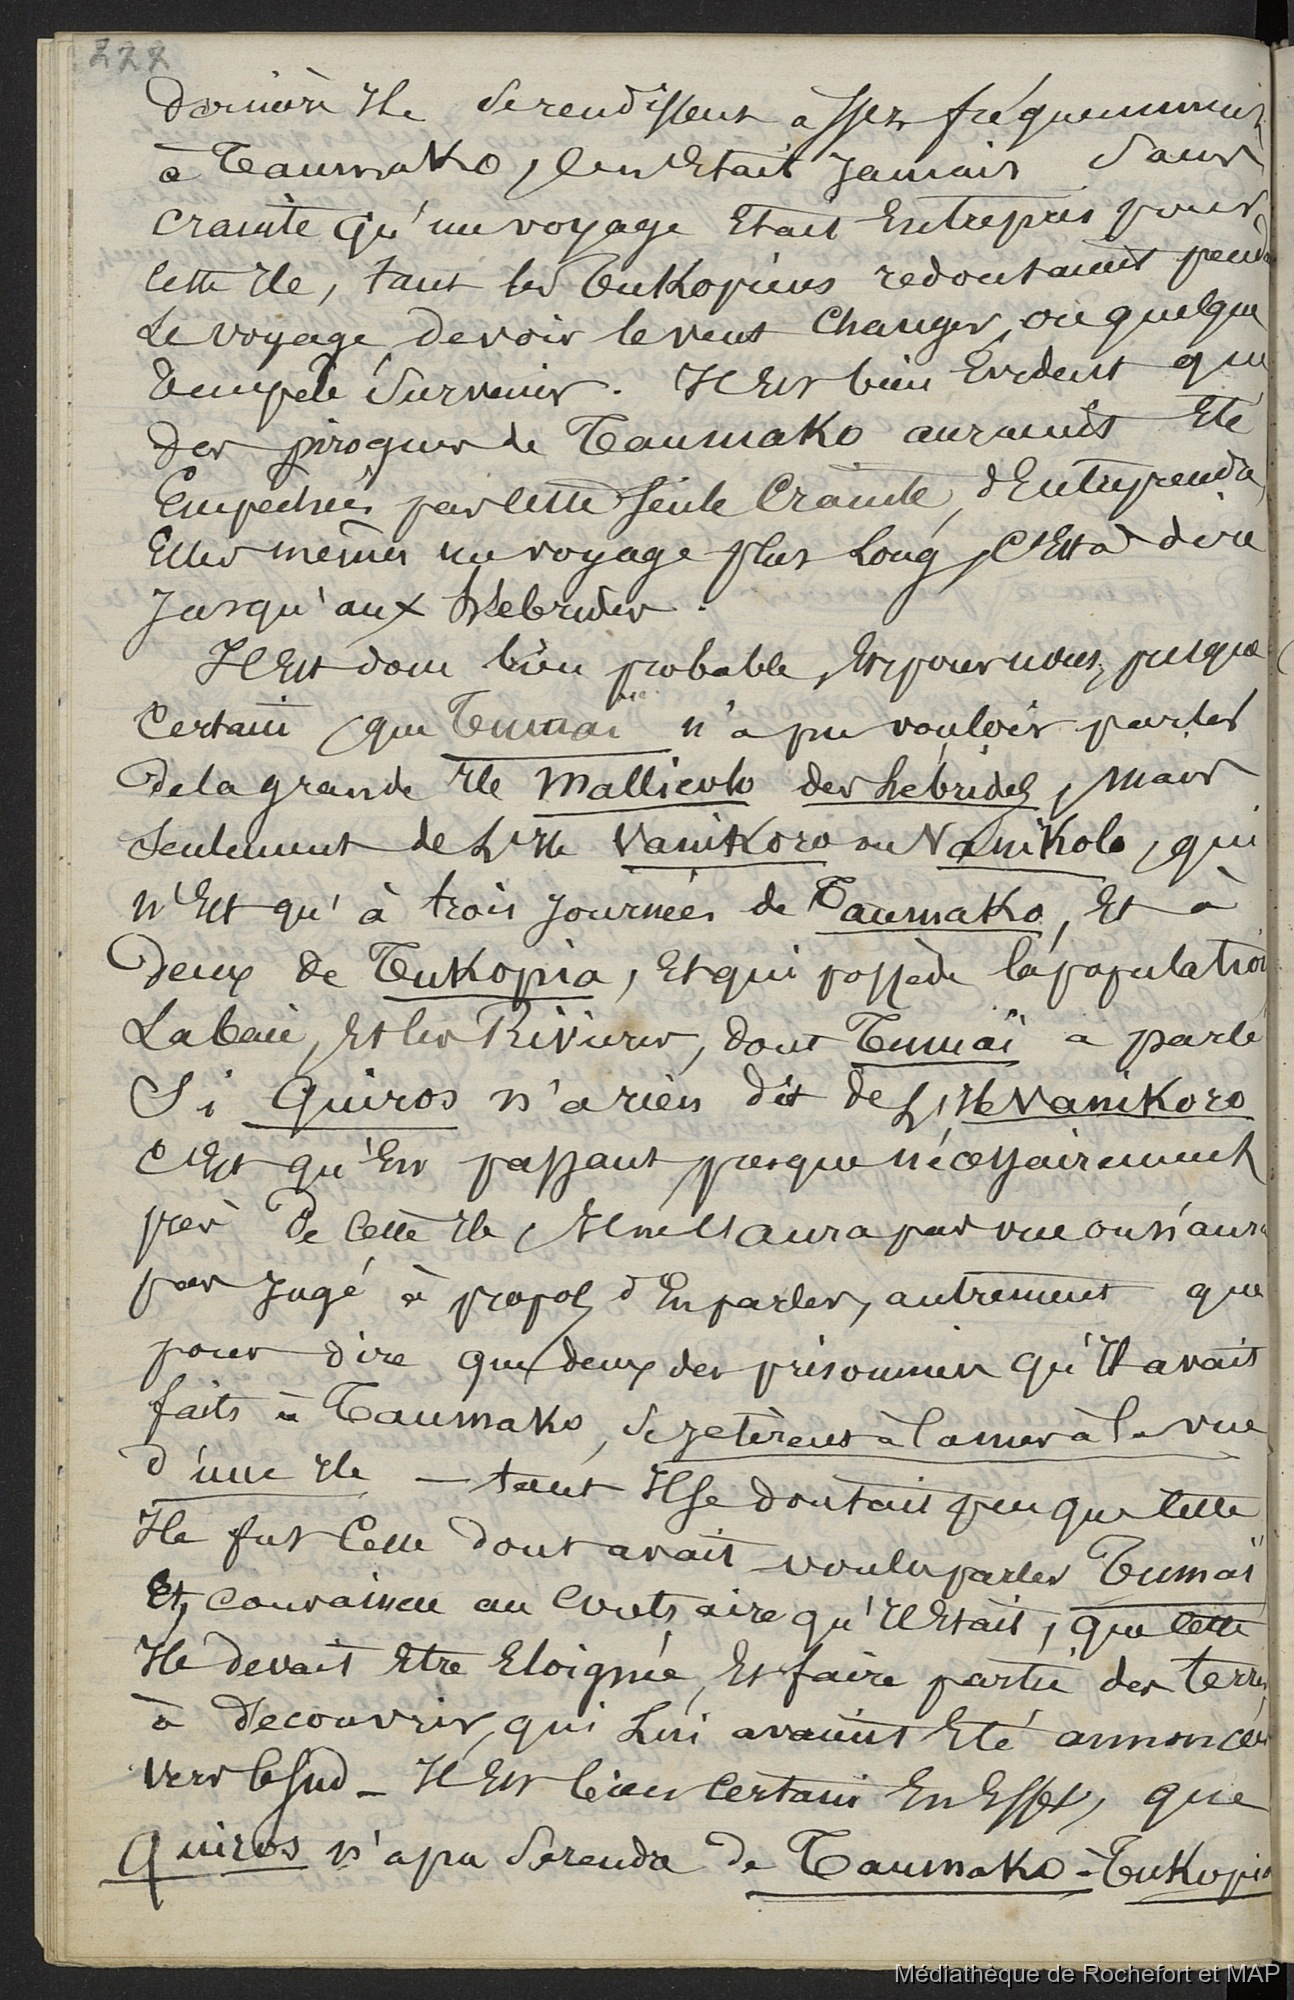 222
dernière Ile se rendissent assez fréquemment
à Taumako, ce n'était jamais sans
crainte qu'un voyage était entrepris pour
cette Ile, tant les Tukopiens redoutaient pend
le voyage de voir le vent changer, ou quelque
tempête survenir. Il est bien évident que
des pirogues de Taumako auraient été
empêchées par cette seule crainte, d'entreprendre
elles mêmes un voyage plus long, c'est à dire
jusqu'aux hébrides.
Il est donc bien probable, et pour nous, presque
certain, que Tumaï n'a pu vouloir parler
de la grande Ile Mallicolo des hébrides, mais
seulement de l'Ile Vanikoro ou Vanikolo, qui
n'est qu'à trois journées de Taumako, et à
deux de Tukopia, et qui possède la population
La baie, et les Rivières, dont Tumaï a parlé
Si Quiros n'a rien dit de l'Ile Vanikoro
c'est qu'en passant presque nécessairement
près de cette Ile, Il ne l'aura pas vue ou n'aura
pas jugé à propos d'en parler, autrement que
pour dire que deux des prisonniers qu'Il avait
faits à Taumako, se jetèrent à la mer à la vue
d'une Ile — tant Il se doutait peu que cette
Ile fut celle dont avait voulu parler Tumaï
Et, convaincu au contraire qu'Il était, que cette
Ile devait être éloignée, et faire partie des terres
à découvrir, qui lui avaient été annoncées
vers le Sud — Il est bien certain en effet, que
Quiros n'a pu se rendre de Taumako à Tukopia
Médiathèque de Rochefort et MAP